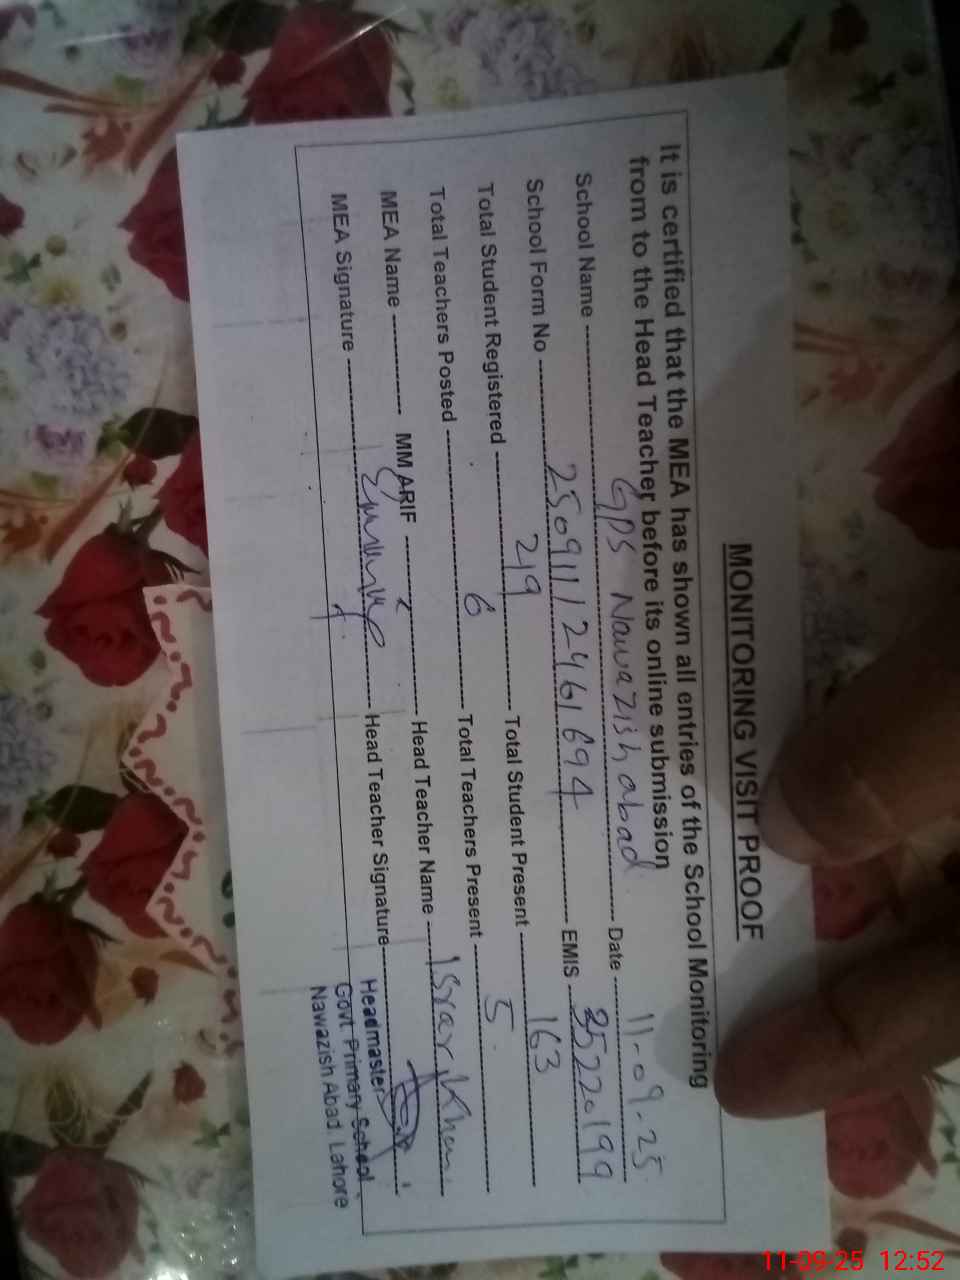 MONITORING VISIT PROOF
It is certified that the MEA has shown all entries of the School Monitoring
from to the Head Teacher before its online submission
School Name ---------- GPS Nawazishabad ---------- Date ---------- 11-09-25
School Form No ---------- 2509111246 1694 ---------- EMIS ---------- 35220199
Total Student Registered ---------- 219 ---------- Total Student Present ---------- 163
Total Teachers Posted ---------- 6 ---------- Total Teachers Present ---------- 5
MEA Name ---------- MM ARIF ---------- Head Teacher Name ---------- Israr Khan
MEA Signature ---------- Head Teacher Signature ----------
Headmaster
Govt Primary School
Nawazish Abad, Lahore
11-09-25 12:52